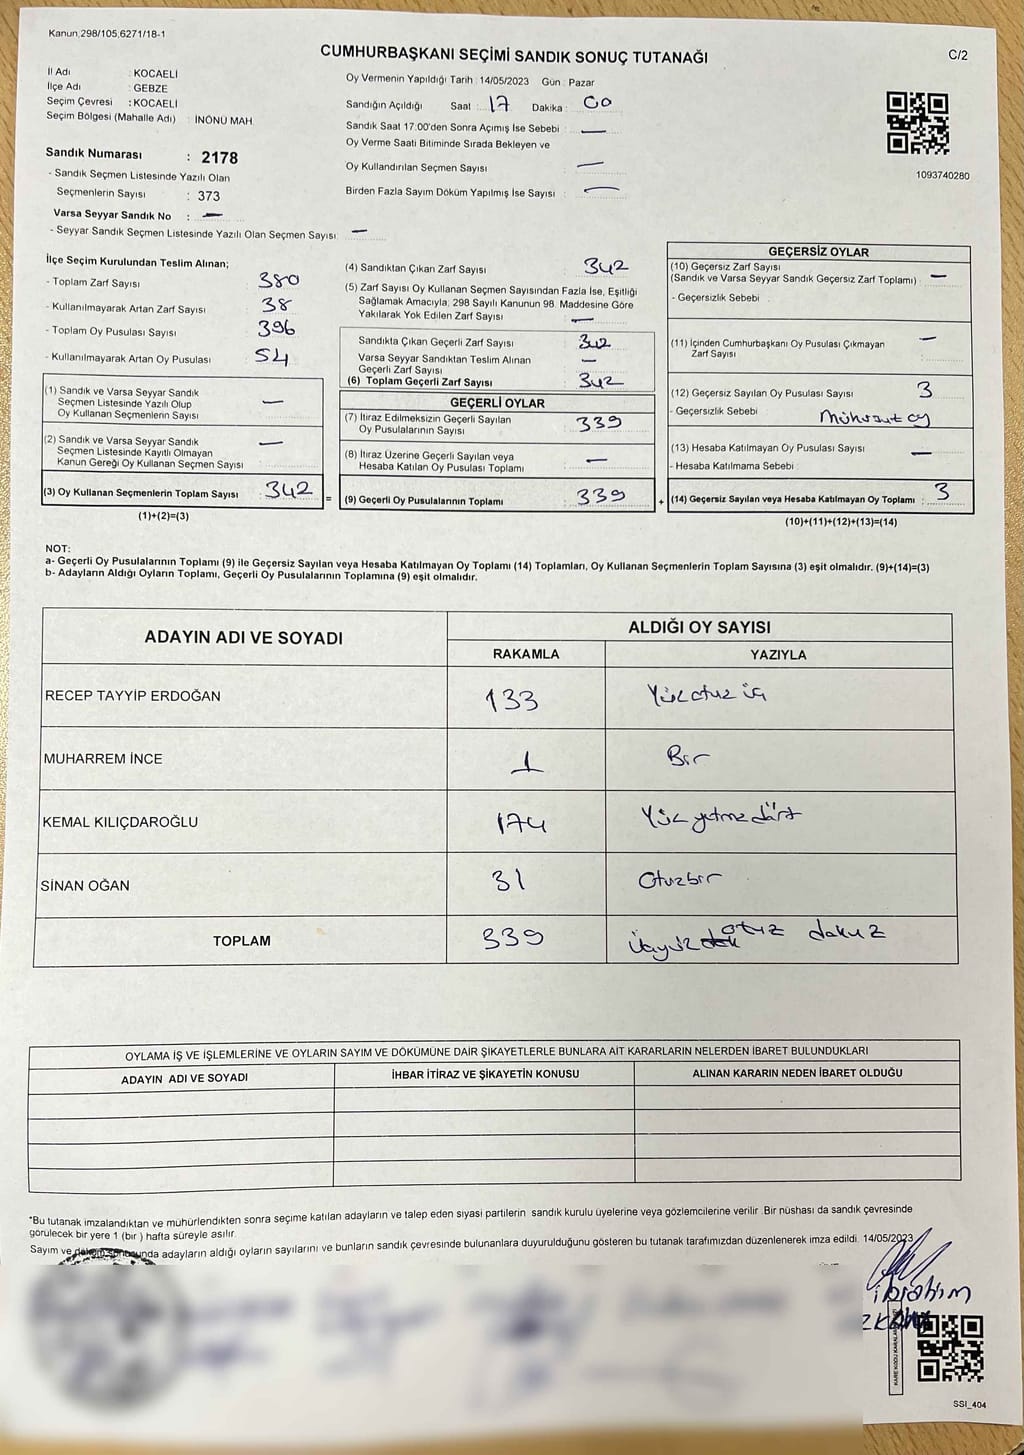 Kanun,298/105,6271/18-1
CUMHURBAŞKANI SEÇİMİ SANDIK SONUÇ TUTANAĞI
C/2
İl Adı : KOCAELİ
İlçe Adı : GEBZE
Seçim Çevresi : KOCAELİ
Seçim Bölgesi (Mahalle Adı) : İNÖNÜ MAH.
Sandık Numarası : 2178
- Sandık Seçmen Listesinde Yazılı Olan
Seçmenlerin Sayısı : 373
Varsa Seyyar Sandık No : —
- Seyyar Sandık Seçmen Listesinde Yazılı Olan Seçmen Sayısı : —
Oy Vermenin Yapıldığı Tarih : 14/05/2023 Gün : Pazar
Sandığın Açıldığı Saat : 17 Dakika : 00
Sandık Saat 17:00'den Sonra Açımış İse Sebebi : —
Oy Verme Saati Bitiminde Sırada Bekleyen ve
Oy Kullandırılan Seçmen Sayısı : —
Birden Fazla Sayım Döküm Yapılmış İse Sayısı : —
1093740280
İlçe Seçim Kurulundan Teslim Alınan;
- Toplam Zarf Sayısı : 380
- Kullanılmayarak Artan Zarf Sayısı : 38
- Toplam Oy Pusulası Sayısı : 396
- Kullanılmayarak Artan Oy Pusulası : 54
(1) Sandık ve Varsa Seyyar Sandık
Seçmen Listesinde Yazılı Olup
Oy Kullanan Seçmenlerin Sayısı : —
(2) Sandık ve Varsa Seyyar Sandık
Seçmen Listesinde Kayıtlı Olmayan
Kanun Gereği Oy Kullanan Seçmen Sayısı : —
(3) Oy Kullanan Seçmenlerin Toplam Sayısı : 342
(1)+(2)=(3)
=
(4) Sandıktan Çıkan Zarf Sayısı : 342
(5) Zarf Sayısı Oy Kullanan Seçmen Sayısından Fazla İse, Eşitliği
Sağlamak Amacıyla; 298 Sayılı Kanunun 98. Maddesine Göre
Yakılarak Yok Edilen Zarf Sayısı : —
Sandıkta Çıkan Geçerli Zarf Sayısı : 342
Varsa Seyyar Sandıktan Teslim Alınan
Geçerli Zarf Sayısı : —
(6) Toplam Geçerli Zarf Sayısı : 342
GEÇERLİ OYLAR
(7) İtiraz Edilmeksizin Geçerli Sayılan
Oy Pusulalarının Sayısı : 339
(8) İtiraz Üzerine Geçerli Sayılan veya
Hesaba Katılan Oy Pusulası Toplamı : —
(9) Geçerli Oy Pusulalarının Toplamı : 339
+
GEÇERSİZ OYLAR
(10) Geçersiz Zarf Sayısı
(Sandık ve Varsa Seyyar Sandık Geçersiz Zarf Toplamı) : —
- Geçersizlik Sebebi :
(11) İçinden Cumhurbaşkanı Oy Pusulası Çıkmayan
Zarf Sayısı : —
(12) Geçersiz Sayılan Oy Pusulası Sayısı : 3
- Geçersizlik Sebebi : oy
(13) Hesaba Katılmayan Oy Pusulası Sayısı : —
- Hesaba Katılmama Sebebi :
(14) Geçersiz Sayılan veya Hesaba Katılmayan Oy Toplamı : 3
(10)+(11)+(12)+(13)=(14)
NOT:
a- Geçerli Oy Pusulalarının Toplamı (9) ile Geçersiz Sayılan veya Hesaba Katılmayan Oy Toplamı (14) Toplamları, Oy Kullanan Seçmenlerin Toplam Sayısına (3) eşit olmalıdır. (9)+(14)=(3)
b- Adayların Aldığı Oyların Toplamı, Geçerli Oy Pusulalarının Toplamına (9) eşit olmalıdır.
ADAYIN ADI VE SOYADI
ALDIĞI OY SAYISI
RAKAMLA YAZIYLA
RECEP TAYYİP ERDOĞAN 133 Yüz otuz üç
MUHARREM İNCE 1 Bir
KEMAL KILIÇDAROĞLU 174 Yüz yetmiş dört
SİNAN OĞAN 31 Otuzbir
TOPLAM 339 Üçyüz otuz dokuz
OYLAMA İŞ VE İŞLEMLERİNE VE OYLARIN SAYIM VE DÖKÜMÜNE DAİR ŞİKAYETLERLE BUNLARA AİT KARARLARIN NELERDEN İBARET BULUNDUKLARI
ADAYIN ADI VE SOYADI İHBAR İTİRAZ VE ŞİKAYETİN KONUSU ALINAN KARARIN NEDEN İBARET OLDUĞU
*Bu tutanak imzalandıktan ve mühürlendikten sonra seçime katılan adayların ve talep eden siyasi partilerin sandık kurulu üyelerine veya gözlemcilerine verilir. Bir nüshası da sandık çevresinde
görülecek bir yere 1 (bir ) hafta süreyle asılır.
Sayım ve döküm sonucunda adayların aldığı oyların sayılarını ve bunların sandık çevresinde bulunanlara duyurulduğunu gösteren bu tutanak tarafımızdan düzenlenerek imza edildi. 14/05/2023
İbrahim
SSİ_404